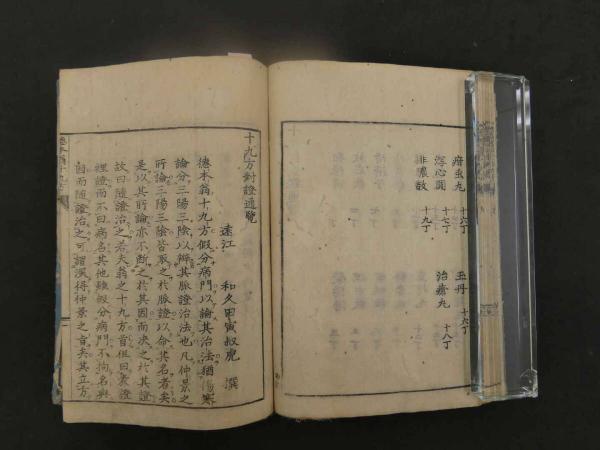 疳虫丸 十六丁
瀉心圓 十七丁
排膿散 十九丁
玉丹 十六丁
治瘡丸 十八丁
十九方對證通覽
遠江 和久田寅叔虎 撰
德本翁十九方假分病門以論其治法猶傷寒
論分三陽三陰以辨其脈證治法也凡仲景之
所論三陽三陰皆取之於脈證以命其名者矣
是以其所論亦不斷之於其因而决之於其證
故曰隨證治之若夫翁之十九方首但曰表證
裡證而不曰病名其他雖假分病門不拘名與
因而隨證治之可謂深得仲景之旨矣其立方